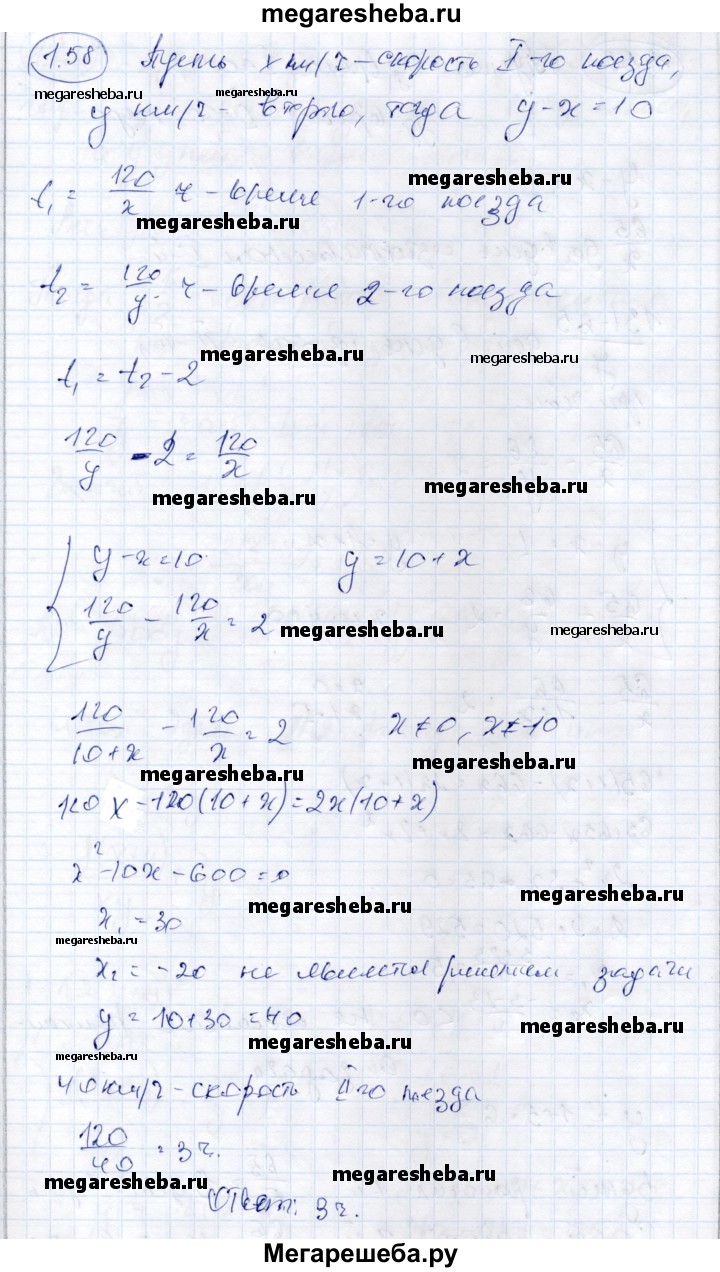 megaresheba.ru
1.58 Пусть x км/ч – скорость I-го поезда,
megaresheba.ru megaresheba.ru
y км/ч – второго, тогда y-x=10
megaresheba.ru
t₁ = 120/x ч – время 1-го поезда
megaresheba.ru
t₂ = 120/y ч – время 2-го поезда
megaresheba.ru megaresheba.ru
t₁ = t₂ - 2
120/y - 2 = 120/x
megaresheba.ru megaresheba.ru
{ y-x=10 y=10+x
120/y - 120/x = 2
megaresheba.ru megaresheba.ru
120/(10+x) - 120/x = 2 x≠0, x≠-10
megaresheba.ru megaresheba.ru
120x - 120(10+x) = 2x(10+x)
x²-10x-600=0
megaresheba.ru megaresheba.ru
x₁ = 30
megaresheba.ru
x₂ = -20 не является решением задачи
y = 10+30 = 40
megaresheba.ru megaresheba.ru
megaresheba.ru
40 км/ч – скорость II-го поезда
120/40 = 3 ч.
megaresheba.ru megaresheba.ru
Ответ: 3 ч.
Мегарешеба.ру